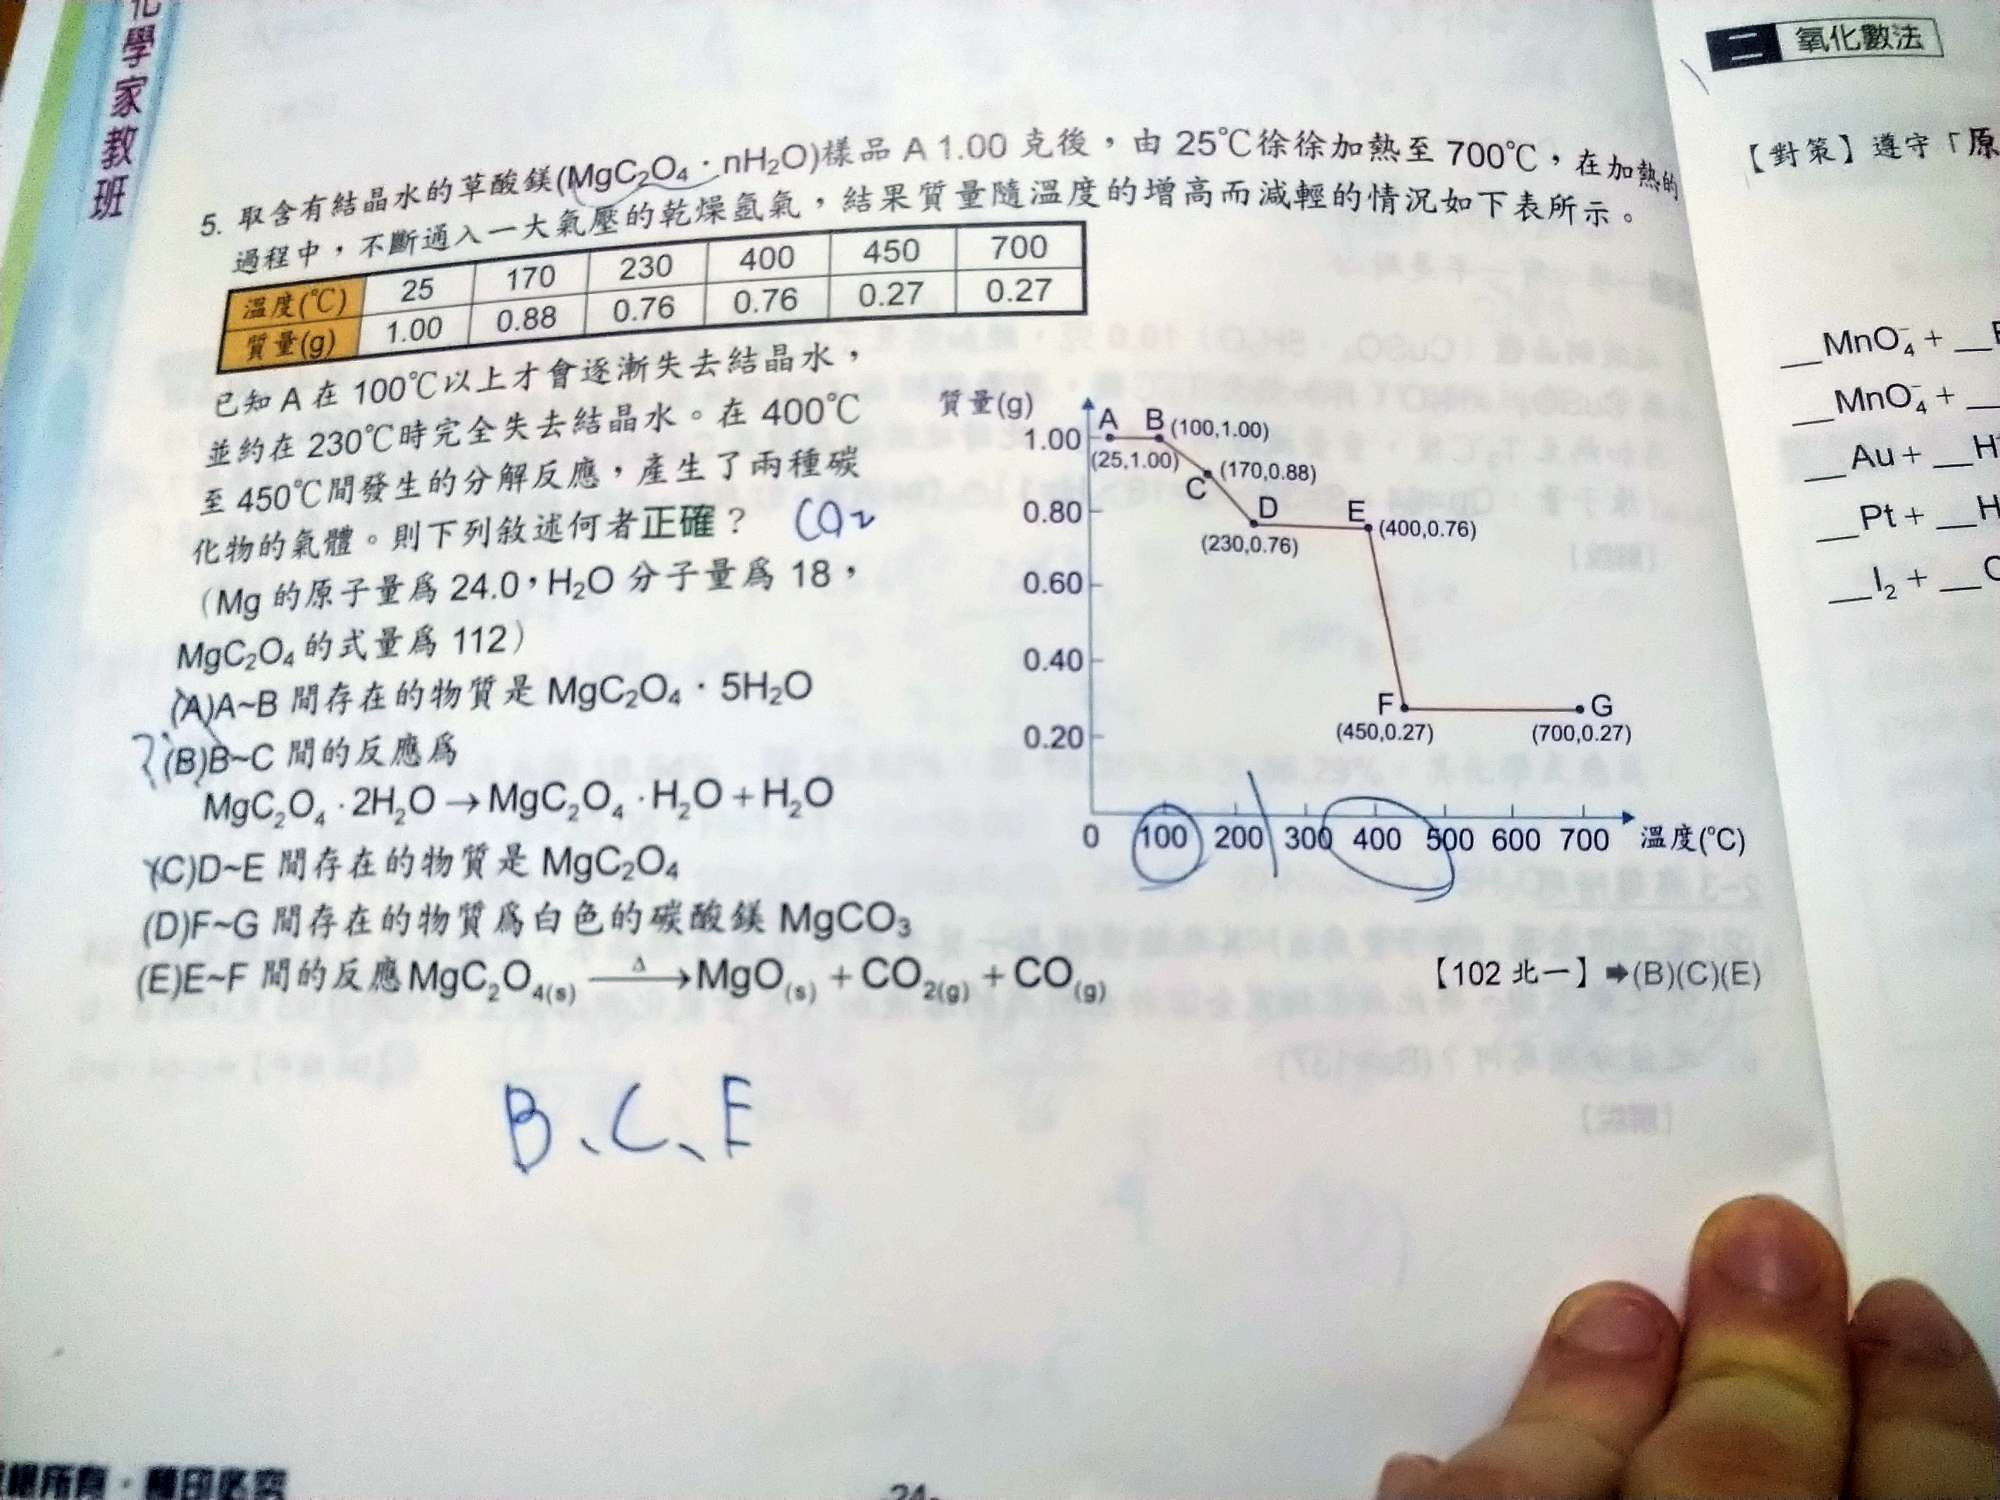 化學家教班
5. 取含有結晶水的草酸鎂(MgC₂O₄・nH₂O)樣品 A 1.00 克後，由 25℃徐徐加熱至 700℃，在加熱的
過程中，不斷通入一大氣壓的乾燥氬氣，結果質量隨溫度的增高而減輕的情況如下表所示。
溫度(℃) 25 170 230 400 450 700
質量(g) 1.00 0.88 0.76 0.76 0.27 0.27
已知 A 在 100℃以上才會逐漸失去結晶水，
並約在 230℃時完全失去結晶水。在 400℃
至 450℃間發生的分解反應，產生了兩種碳
化物的氣體。則下列敘述何者正確？ CO₂
（Mg 的原子量爲 24.0，H₂O 分子量爲 18，
MgC₂O₄ 的式量爲 112）
(A)A~B 間存在的物質是 MgC₂O₄・5H₂O
? (B)B~C 間的反應爲
MgC₂O₄・2H₂O → MgC₂O₄・H₂O + H₂O
(C)D~E 間存在的物質是 MgC₂O₄
(D)F~G 間存在的物質爲白色的碳酸鎂 MgCO₃
(E)E~F 間的反應 MgC₂O₄₍ₛ₎ —Δ→ MgO₍ₛ₎ + CO₂(g) + CO(g)
【102 北一】➡(B)(C)(E)
質量(g)
1.00
0.80
0.60
0.40
0.20
A
(25,1.00)
B (100,1.00)
C (170,0.88)
D
(230,0.76)
E (400,0.76)
F
(450,0.27)
G
(700,0.27)
0 100 200 300 400 500 600 700 溫度(℃)
B、C、E
-24-
二 氧化數法
【對策】遵守「原
__MnO₄⁻ + __
__MnO₄⁻ + __
__Au + __H
__Pt + __H
__I₂ + __